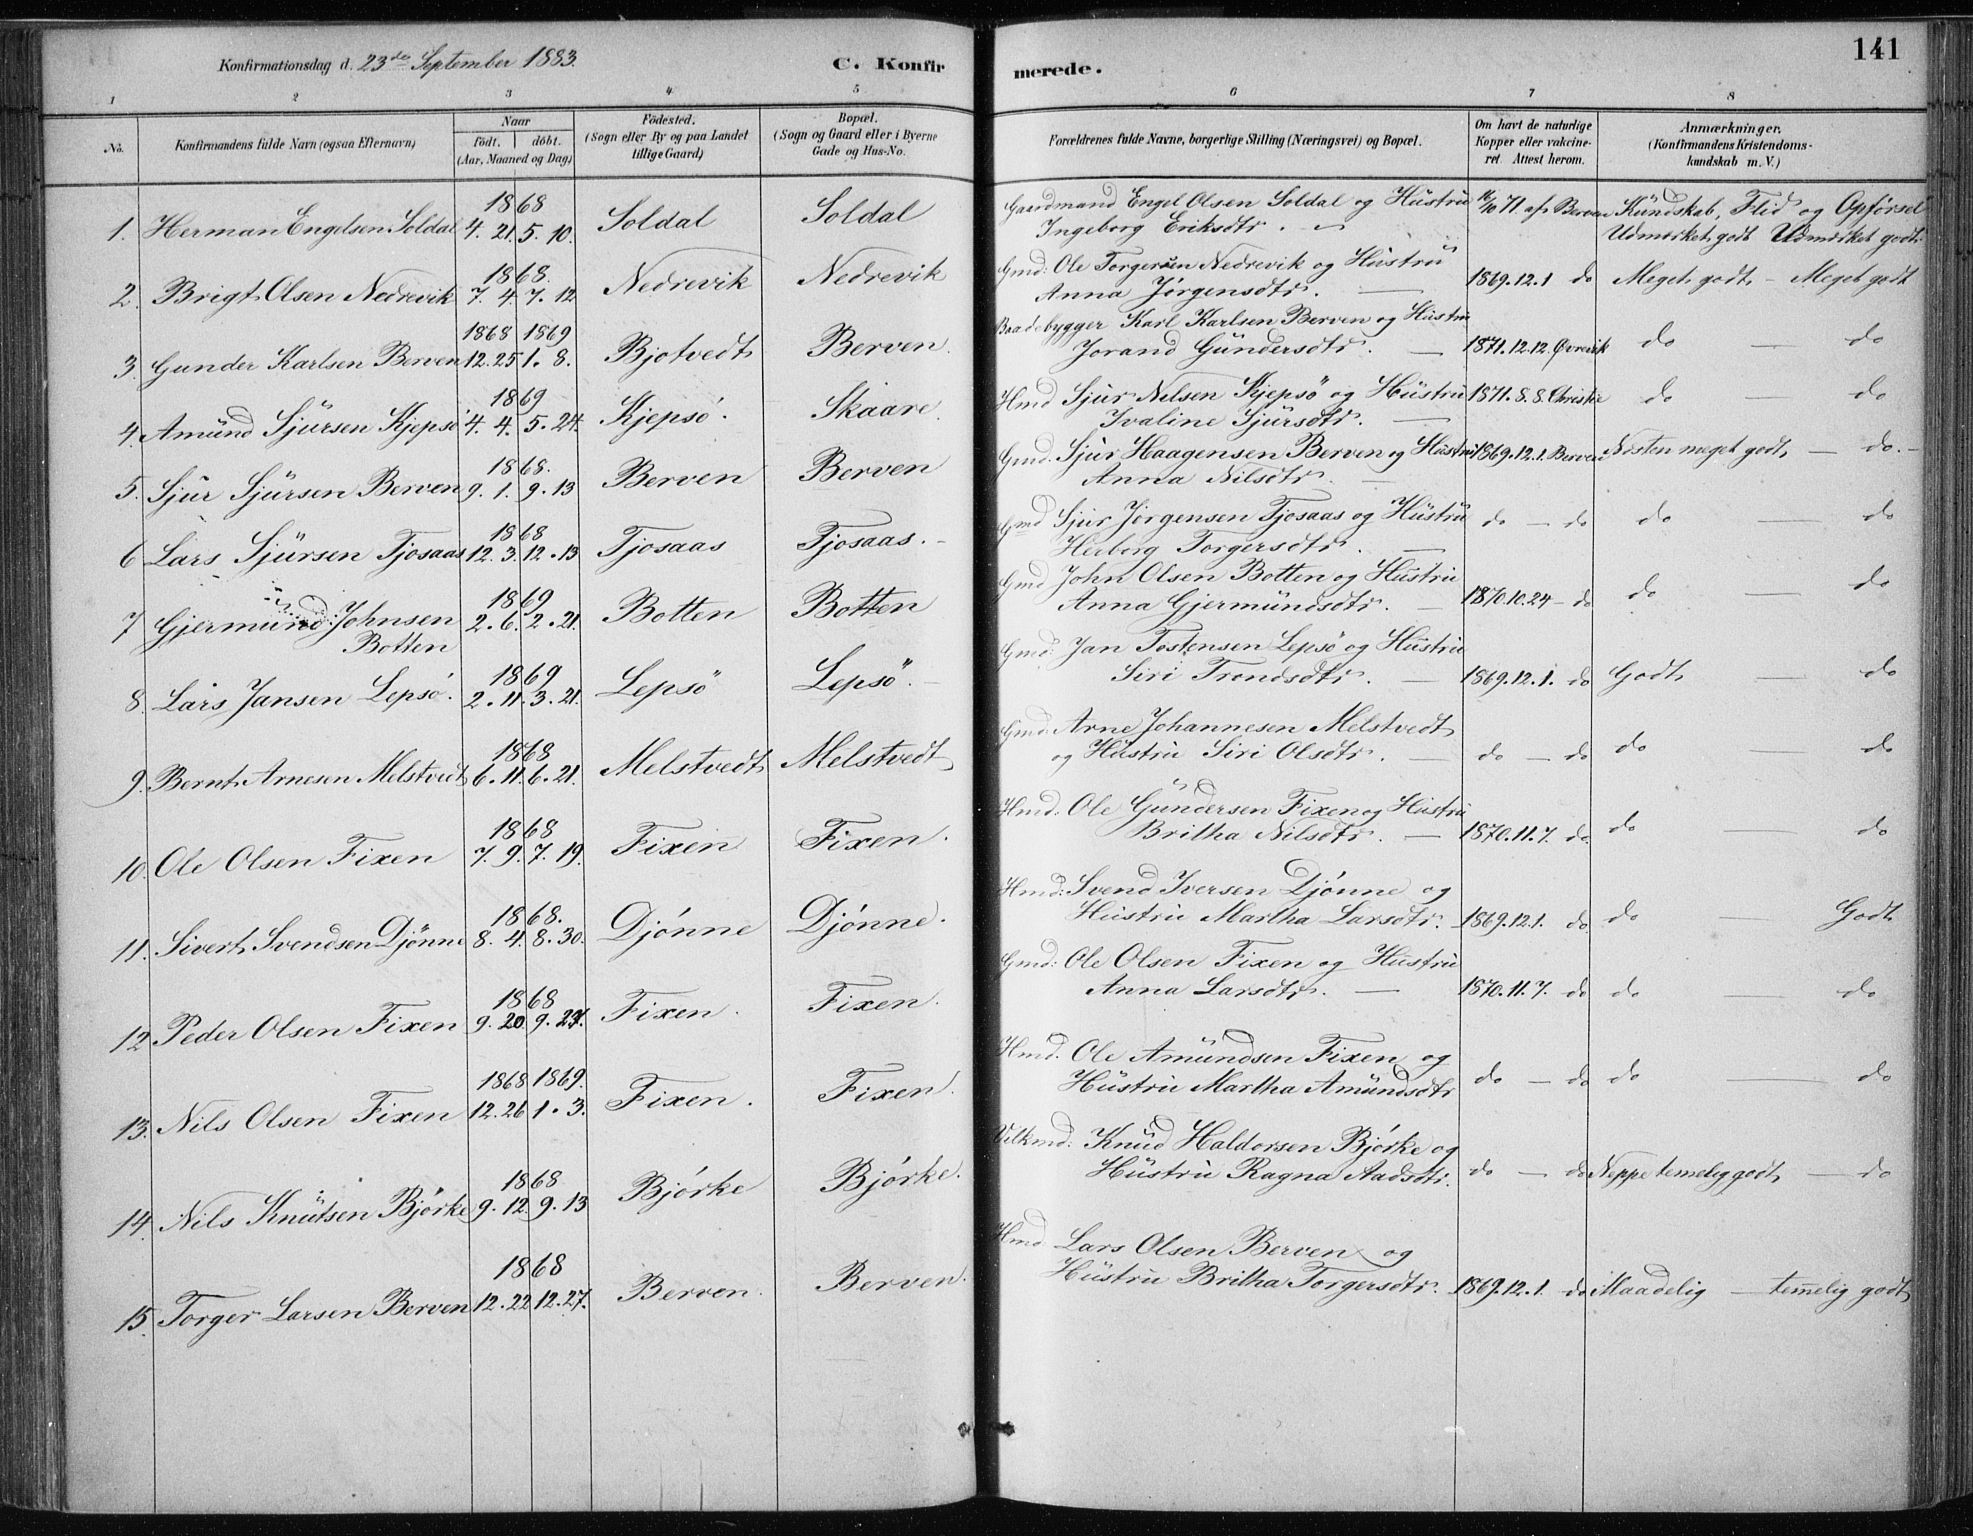 Konfirmationsdag d. 23de September 1883. C. Konfirmerede. 141
1 2 3 4 5 6 7 8
No. Konfirmandens fulde Navn (ogsaa Efternavn) Naar födt. döbt. (Aar, Maaned og Dag) Födested. (Sogn eller By og paa Landet tillige Gaard) Bopæl. (Sogn og Gaard eller i Byerne Gade og Hus-No. Forældrenes fulde Navne, borgerlige Stilling (Næringsvei) og Bopæl. Om havt de naturlige Kopper eller vakcineret Attest herom. Anmærkninger. (Konfirmandens Kristendomskundskab m. V.)
1. Herman Engelsen Soldal 1868 4. 21. 5. 10. Soldal Soldal Gaardmand Engel Olsen Soldal og Hustru 71 af Berven Kundskab, Flid og Opförsel
Ingeborg Eriksdtr. Udmærket godt Udmærket godt.
2. Brigt Olsen Nedrevik 1868. 7. 4. 7. 12 Nedrevik Nedrevik Gmd: Ole Torgersen Nedrevik og Hustru
Anna Jørgensdtr. — 1869.12.1 do Meget godt – Meget godt
3. Gunder Karlsen Berven 1868 1869 12. 25 1. 8. Bjotvedt Berven. Baadebygger Karl Karlsen Berven og Hustru
Jorand Gundersdtr. — 1871.12.12. Øvrevik do — do
4. Amund Sjursen Kjepsö 1869 4. 4. 5. 24. Kjepsö. Skaare. Hmd Sjur Nilsen Kjepsö og Hustru 1871. 8. 8. Christie do — do
Ivaline Sjursdtr. —
5. Sjur Sjursen Berven 1868. 9. 1. 9. 13 Berven Berven Gmd. Sjur Haagensen Berven og Hustru 1869.12.1. Berven Næsten meget godt — do.
Anna Nilsdtr. —
6 Lars Sjursen Tjosaas 1868 12. 3. 12. 13 Tjosaas Tjosaas. Gmd Sjur Jørgensen Tjosaas og Hustru do — do do — do
Herborg Torgersdtr. —
7 Gjermund Johnsen Botten 1869 2. 6. 2. 21. Botten Botten Gmd John Olsen Botten og Hustru
Anna Gjermundsdtr. — 1870.10.24 – do do — do
8. Lars Jansen Lepsö. 1869 2. 11. 3. 21. Lepsö Lepsö. Gmd: Jan Tostensen Lepsö og Hustru
Siri Trondsdtr. — 1869.12.1. do Godt — do
9. Bernt Arnesen Melstvedt 1868 6. 11. 6. 21. Melstvedt Melstvedt Gmd: Arne Johannesen Melstvedt
og Hustru Siri Olsdtr. — do — do do — do
10. Ole Olsen Fixen 1868 7. 9. 7. 19. Fixen Fixen. Hmd: Ole Gundersen Fixen og Hustru
Britha Nilsdtr. — 1870.11.7. do. do do
11. Sivert Svendsen Djönne 1868. 8. 4. 8. 30. Djönne Djönne. Hmd: Svend Iversen Djönne og
Hustru Martha Larsdtr. 1869.12.1. do. do — Godt
12 Peder Olsen Fixen 1868 9. 20 9. 27. Fixen. Fixen. Gmd: Ole Olsen Fixen og Hustru
Anna Larsdtr. — 1870.11.7. do do — do
13. Nils Olsen Fixen 1868 1869. 12. 26 1. 3. Fixen. Fixen. Hmd. Ole Amundsen Fixen og
Hustru Martha Amundsdtr do — do do — do
14. Nils Knutsen Bjørke 1868 9. 12. 9. 13 Bjørke Bjørke. Vilkmd: Knud Haldorsen Bjørke og
Hustru Ragna Aadsdtr. do — do Neppe temelig godt — do
15. Torger Larsen Berven 1868 12. 22 12. 27. Berven. Berven. Hmd Lars Olsen Berven og
Hustru Britha Torgersdtr. 1869.12.1. do Maadelig — temelig godt